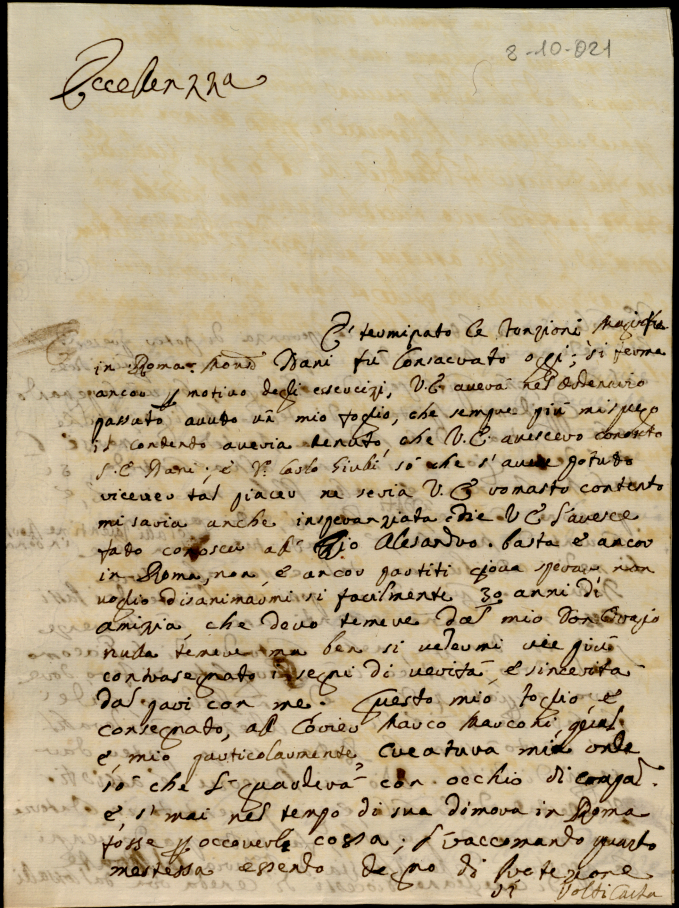 8-10-021
Eccelenzza
E' terminato le fonzioni
in Roma. Nani fù Consacrato oggi; si ferma
ancor p motivo degli essercizi, V.E averà nel
passato avuto un mio foglio, che sempre più mi spiego
il contento averia tenuto, che V.E avescero conosito
S.E Nani; e Carlo so che s' avese potuto
ricever tal piacer ne seria V.E romasto contento
mi saria anche insperanziata che V E l'avesce
fato conoscer al Zio Alesandro. basta è ancor
in Roma, non è ancor partiti giova sperar non
voglio disanimarmi si facilmente 30 anni di
amizzia che devo temere dal mio Don
nulla temere ma ben si vedermi
contrasegnato in segni di verità e sincerità
dal pari con me. Questo mio foglio è
consegnato, al Corier Marco Marconi
è, mio particolarmente creatura mia onde
so che l guarderà con occhio di
è, s' mai nel tempo di sua dimora in Roma
fosse p occorerle cossa; l raccomando quanto
mestessa essendo degno di Protezione
Volti Carta